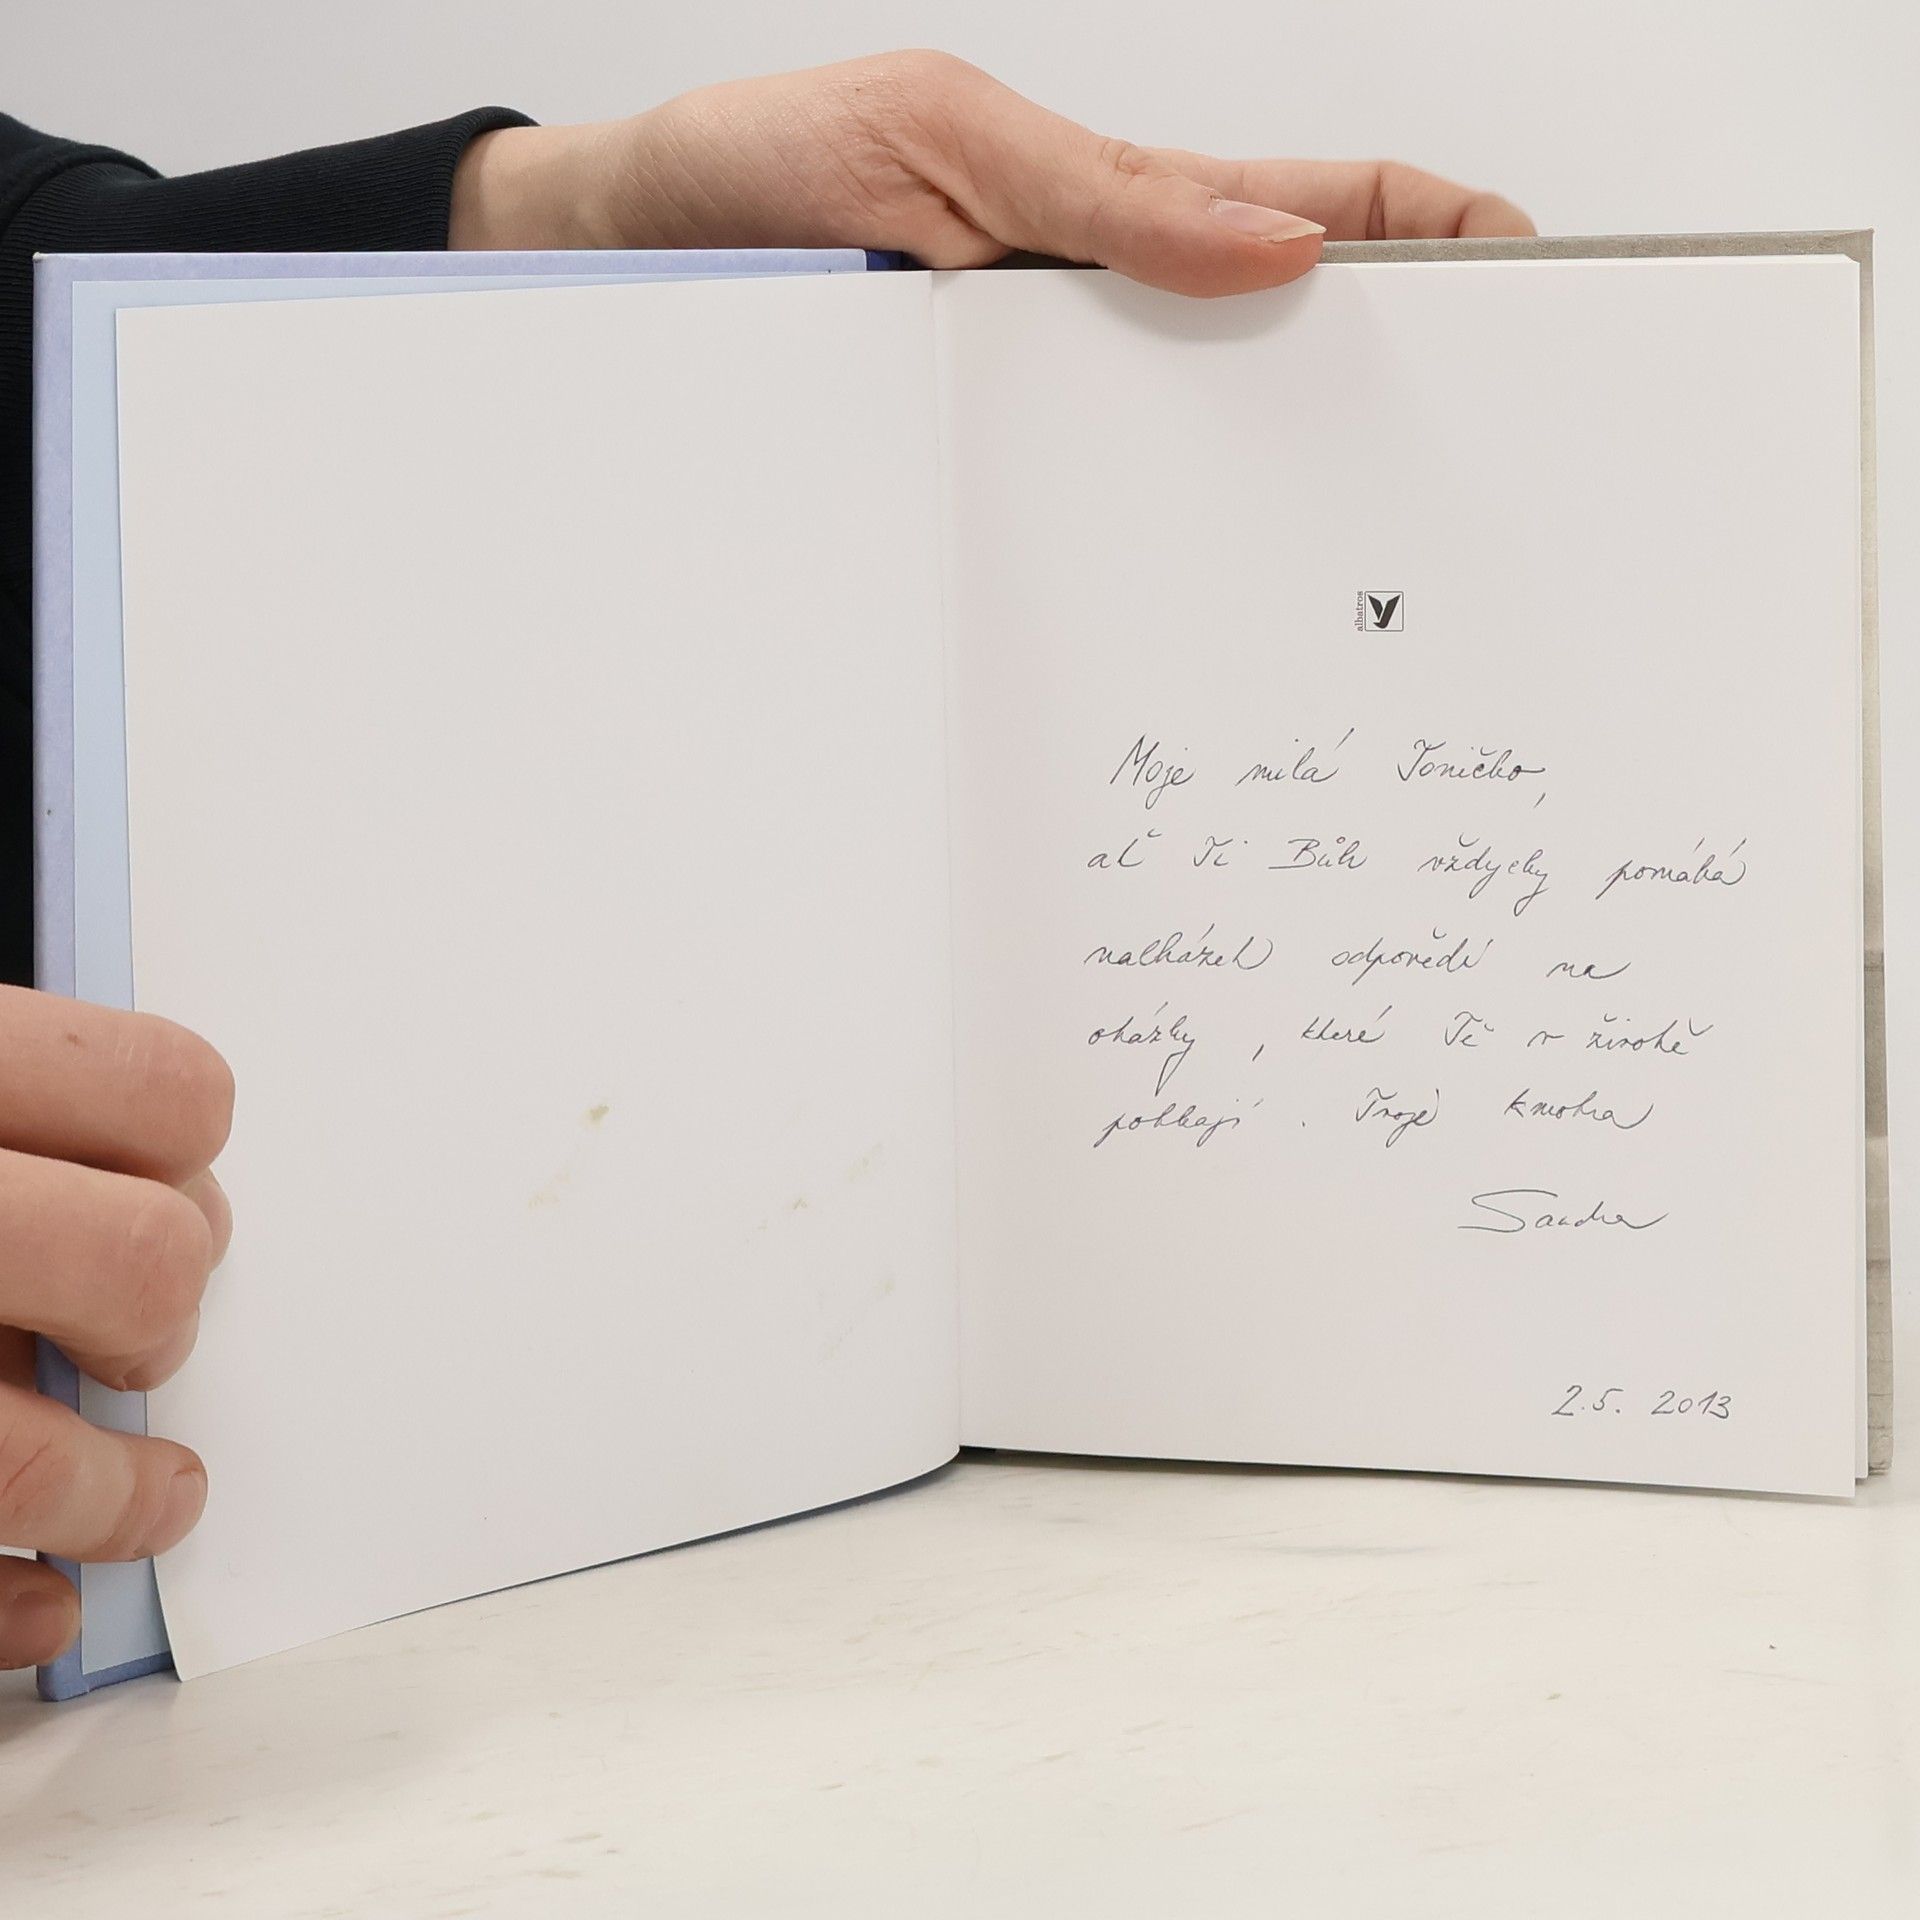 albatros
Moje milá Toničko,
ať Ti Bůh vždycky pomáhá
nalházet odpovědi na
otázky, které Tě v životě
potkají. Tvoje kmotra
Sandra
2.5. 2013